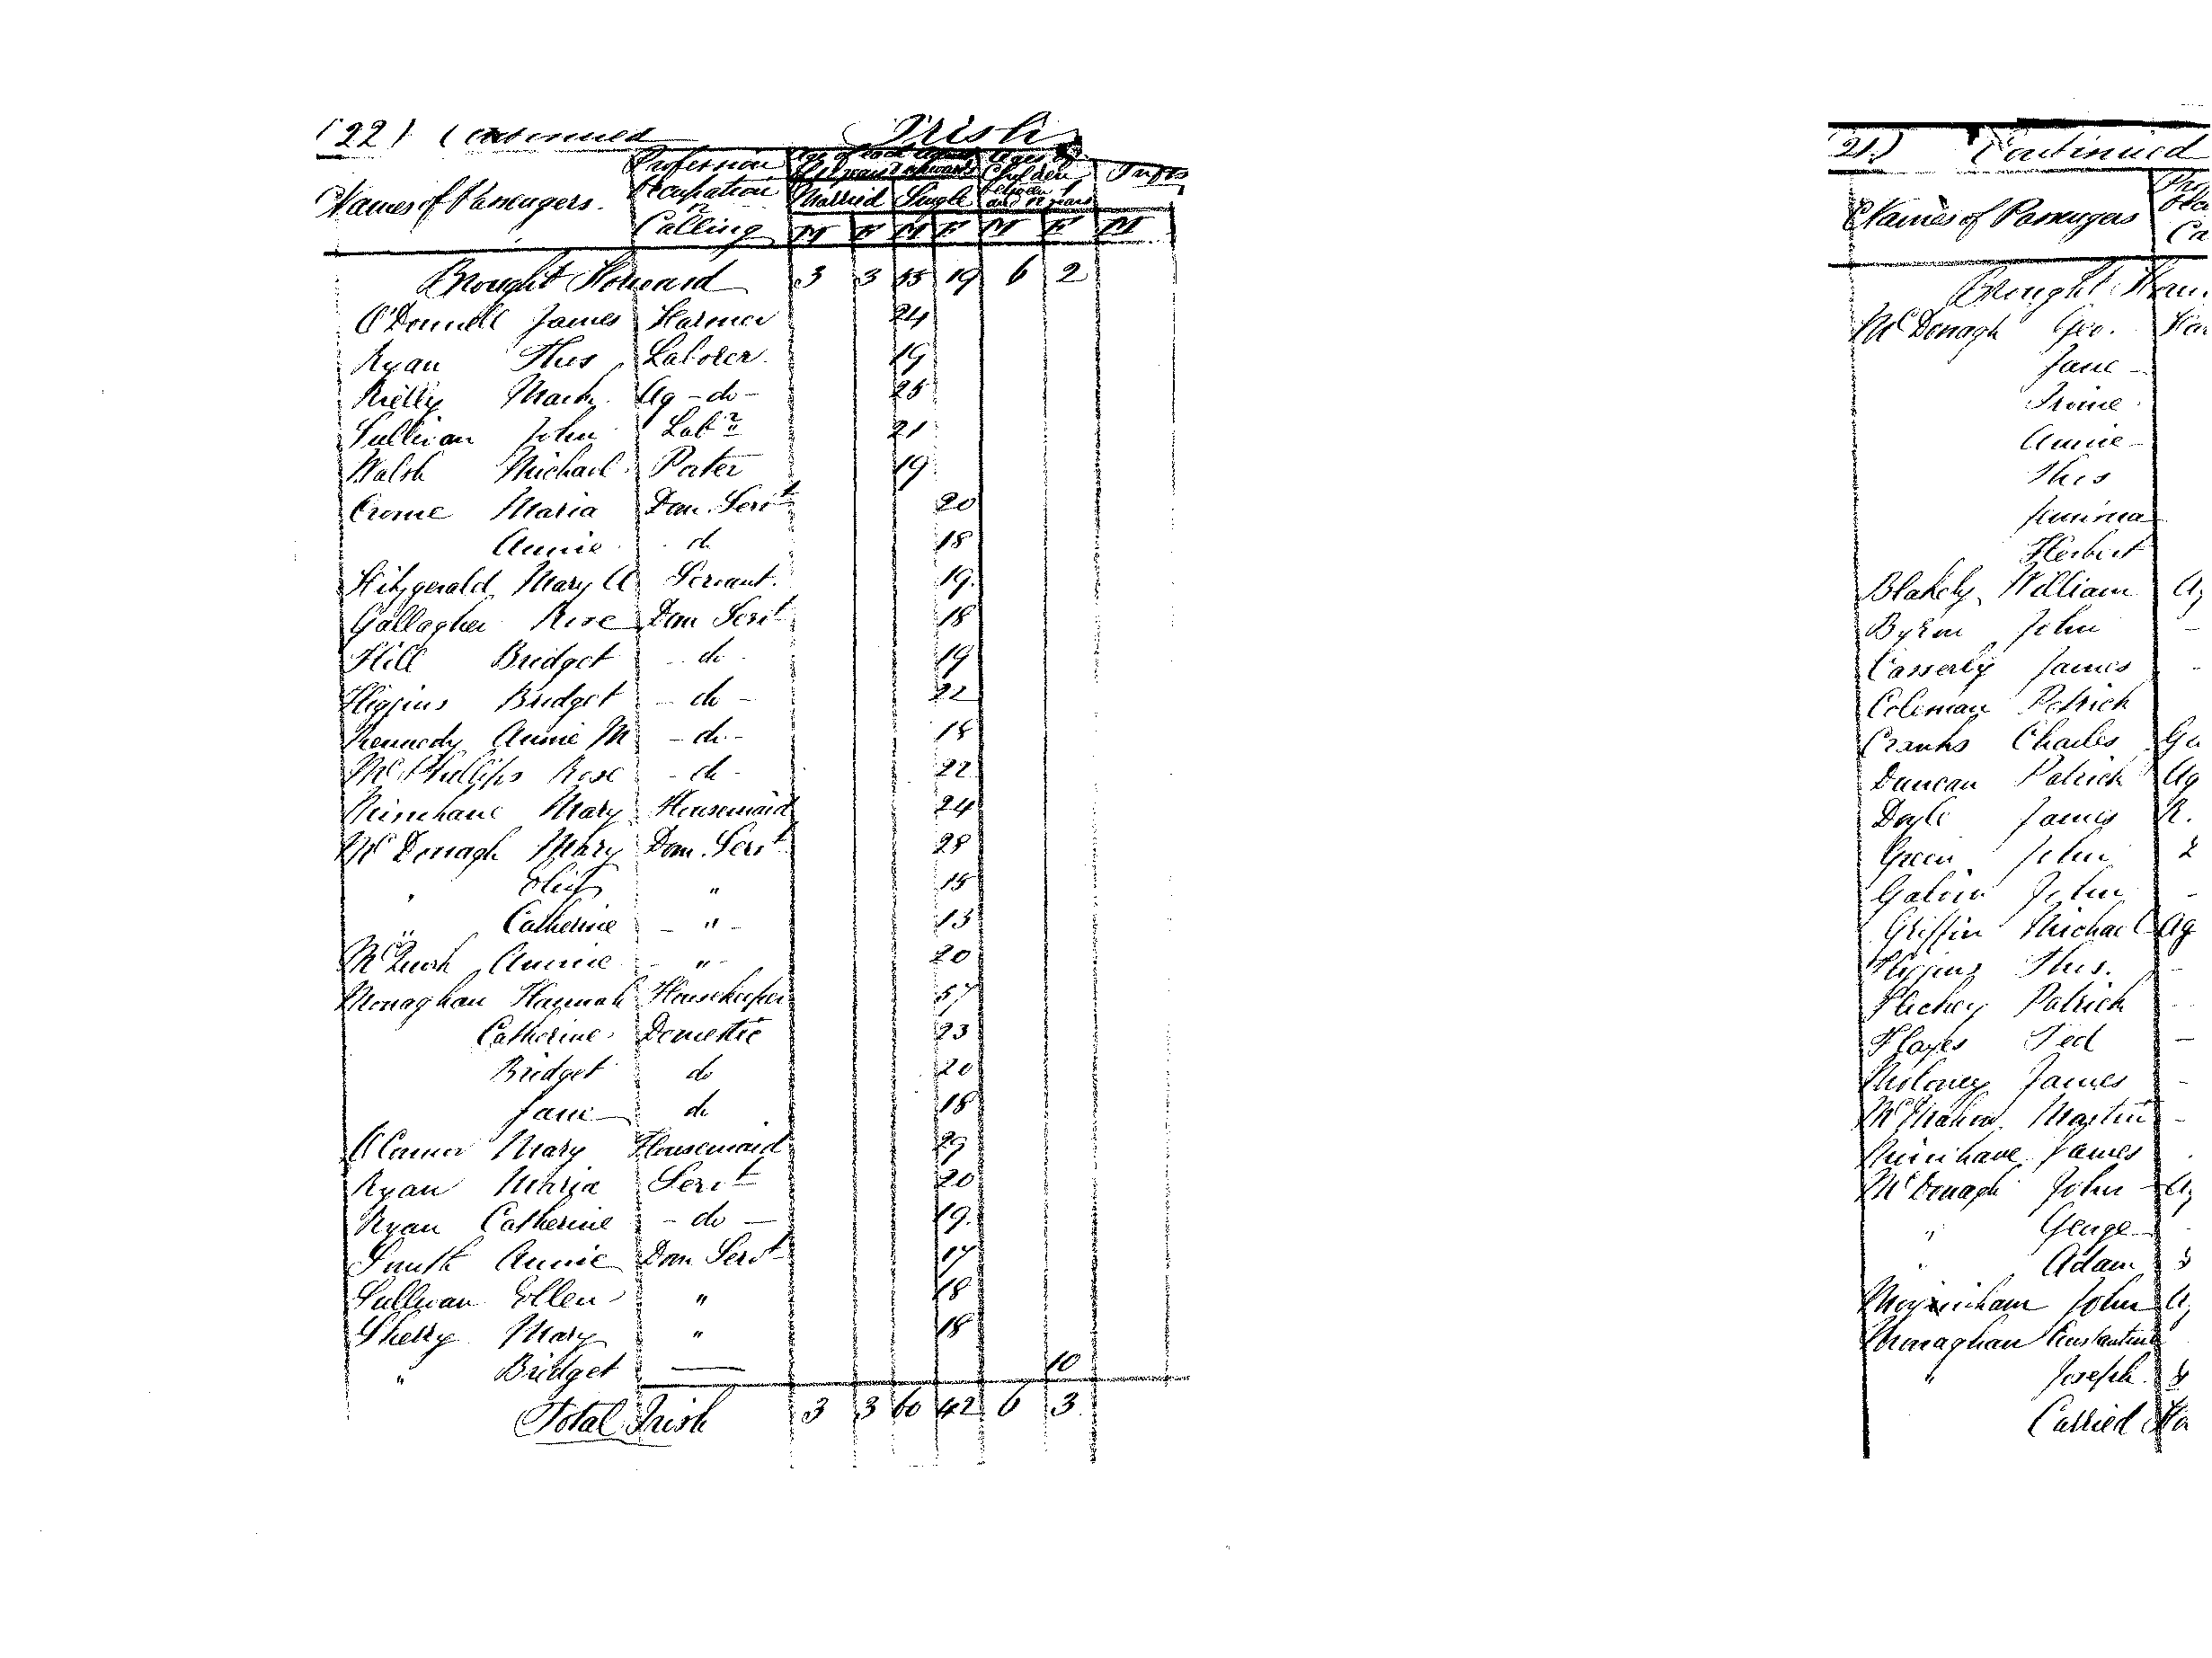 (22) Continued Irish
Names of Passengers. Profession Occupation or Calling Age of each Adult of 12 years & upwards Married Single Ages of Children between 1 and 12 years Infts
M F M F M F M
Brought Forward 3 3 55 19 6 2
O'Donnell James Farmer 24
Ryan Thos Laborer 19
Rielly Mark Ag -do- 25
Sullivan John Labr 21
Walsh Michael Porter 19
Crome Maria Dom. Servt 20
Annie d 18
Fitzgerald Mary A Servant. 19.
Gallagher Rose Dom Servt 18
Hill Bridget - do - 19
Higgins Bridget - do - 22
Kennedy Annie M - do - 18
McPhillips Rose - do - 22
Minihane Mary Housemaid 24
McDonagh Mary Dom. Servt 28
" Eliz " 15
" Catherine - " - 13
Annie - " - 20
Monaghan Hannah Housekeeper 57
Catherine Domestic 23
Bridget do 20
Jane do 18
O'Connor Mary Housemaid 29
Ryan Maria Servt 20
Ryan Catherine - do - 19.
Smith Annie Dom Servt 17
Sullivan Ellen " 18
Sherry Mary " 18
" Bridget — 10
Total Irish 3 3 60 42 6 3
(21) Continued
Names of Passengers
Brought
McDonagh Geo.
Jane -
Irvine
Annie -
Thos
Jemima
Herbert
Blakely William
Byrne John
Casserly James
Coleman Patrick
Cranks Charles
Duncan Patrick Ag
Doyle James
Green John
Galvin John
Griffin Michael Ag
Higgins Thos.
Hickey Patrick
Hayes Ted
Moloney James
McMahon Martin
Minihane James
McDonagh John
" George
" Adam
Moynicham John
Monaghan Constantine
" Joseph
Carried